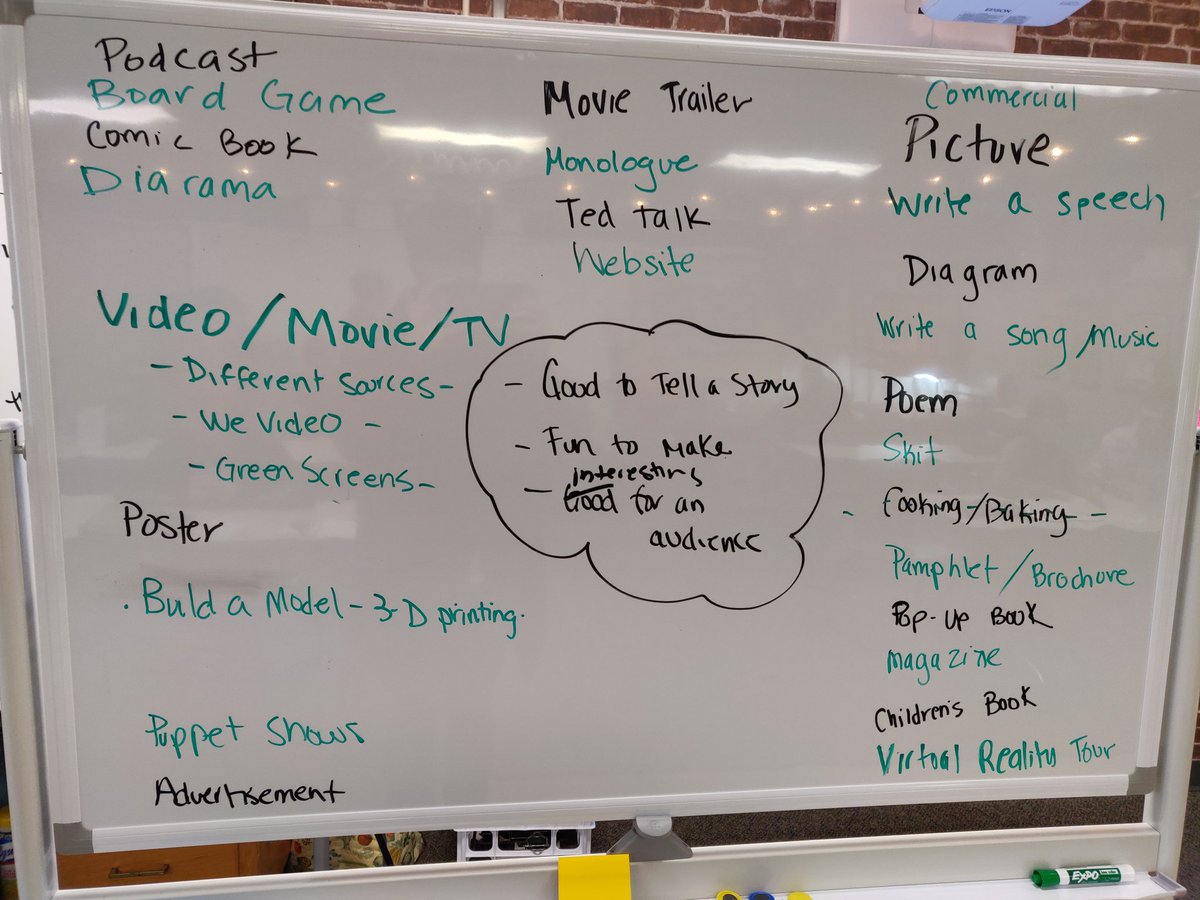 EPSON
Podcast
Board Game
Comic Book
Diarama
Movie Trailer
Monologue
Ted talk
Website
Commercial
Picture
Write a speech
Diagram
Write a song/Music
Poem
Skit
- Cooking/Baking -
Pamphlet/Brochure
Pop-up Book
magazine
Children's Book
Virtual Reality Tour
Video/Movie/TV
- Different Sorces -
- We Video -
- Green Screens -
Poster
. Buld a Model - 3-D printing.
Puppet Shows
Advertisement
- Good to Tell a Story
- Fun to make
interesting
- Good for an
audience
EXPO